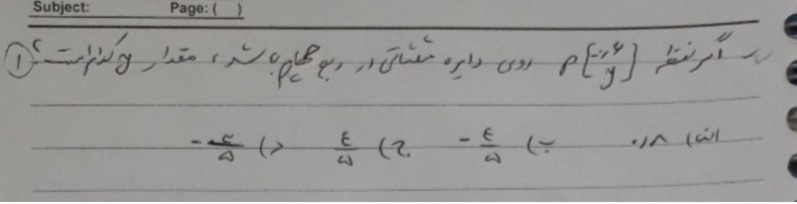 Subject: Page: ( )
① اگر نقطه P[-۰٫۶ y] روی دایره مثلثاتی در ربع چهارم باشد، مقدار y کدام است؟
الف) ۰٫۸ ب) -۴/۵ ج) ۴/۵ د) -۳/۵